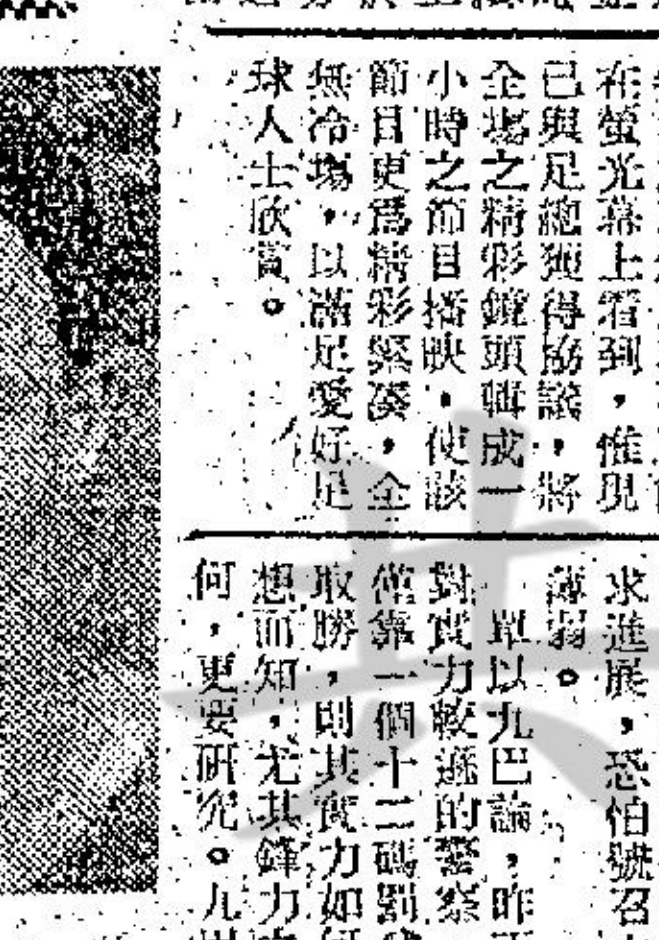 在螢光幕上看到，惟現
已與足總獲得協議，將
全塲之精彩鏡頭輯成一
小時之節目播映，使該
節目更爲精彩緊湊，全
無冷塲，以滿足愛好足
球人士欣賞。
求進展，恐怕號召
薄弱。
單以九巴論，昨
對實力較遜的警察
僅靠一個十二碼罰
取勝，則其實力如何
想而知，尤其鋒力
何，更要研究。九
共